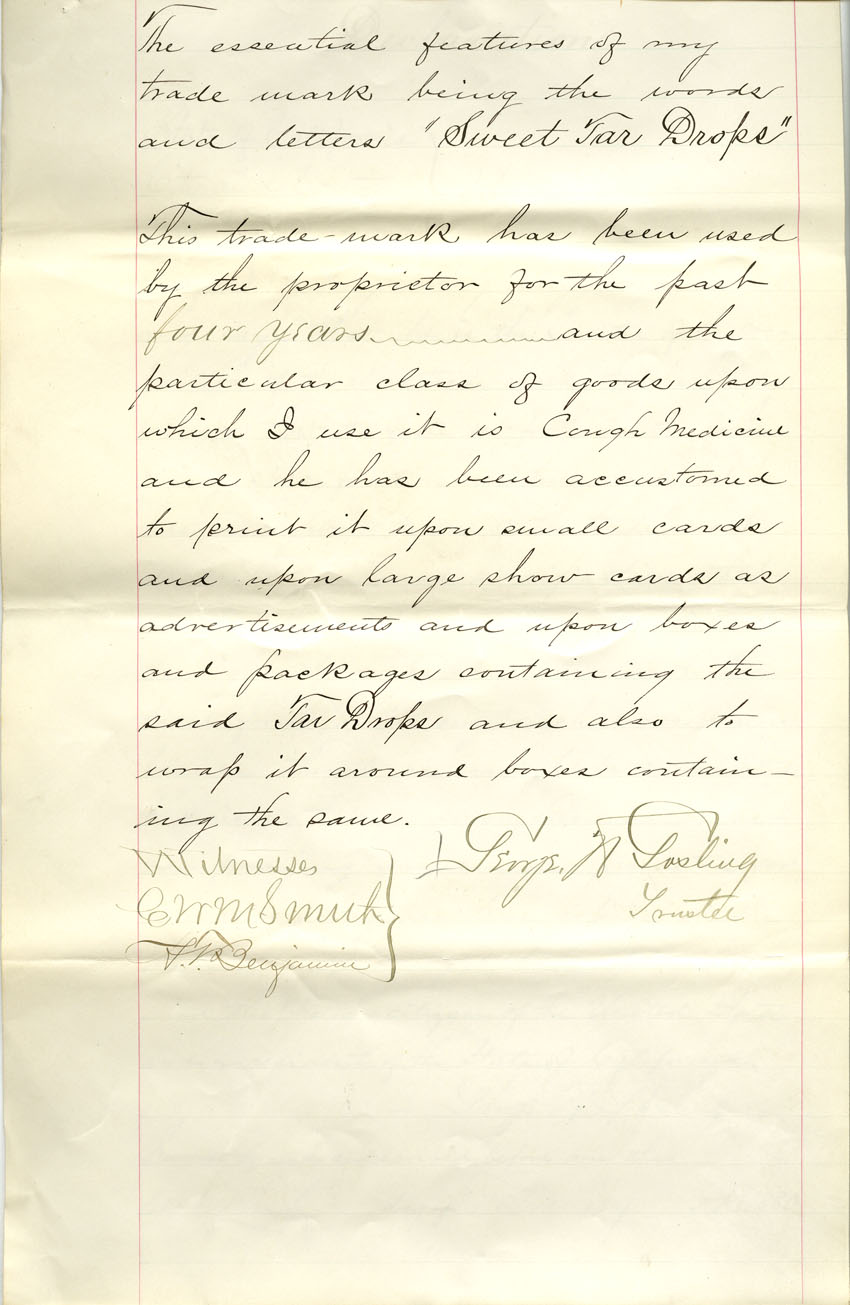 The essential features of my
trade mark being the words
and letters "Sweet Tar Drops"
This trade-mark has been used
by the proprietor for the past
four years and the
particular class of goods upon
which I use it is Cough Medicine
and he has been accustomed
to print it upon small cards
and upon large show cards as
advertisements and upon boxes
and packages containing the
said Tar Drops and also to
wrap it around boxes contain-
ing the same.
Witnesses
George W Gosling
Trustee
Benjamin